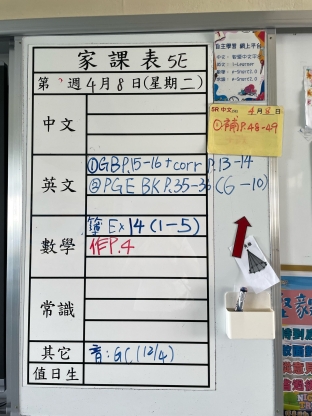 家課表 5E
第 週 4月8日(星期二)
中文
英文
①GB P.15-16 + corr P.13-14
②PGE BK P.35-36 (6-10)
數學
簿 Ex 14 (1-5)
作 P.4
常識
其它
音: GC (12/4)
值日生
自主學習 網上平台
5R 中文
①補 P.48-49